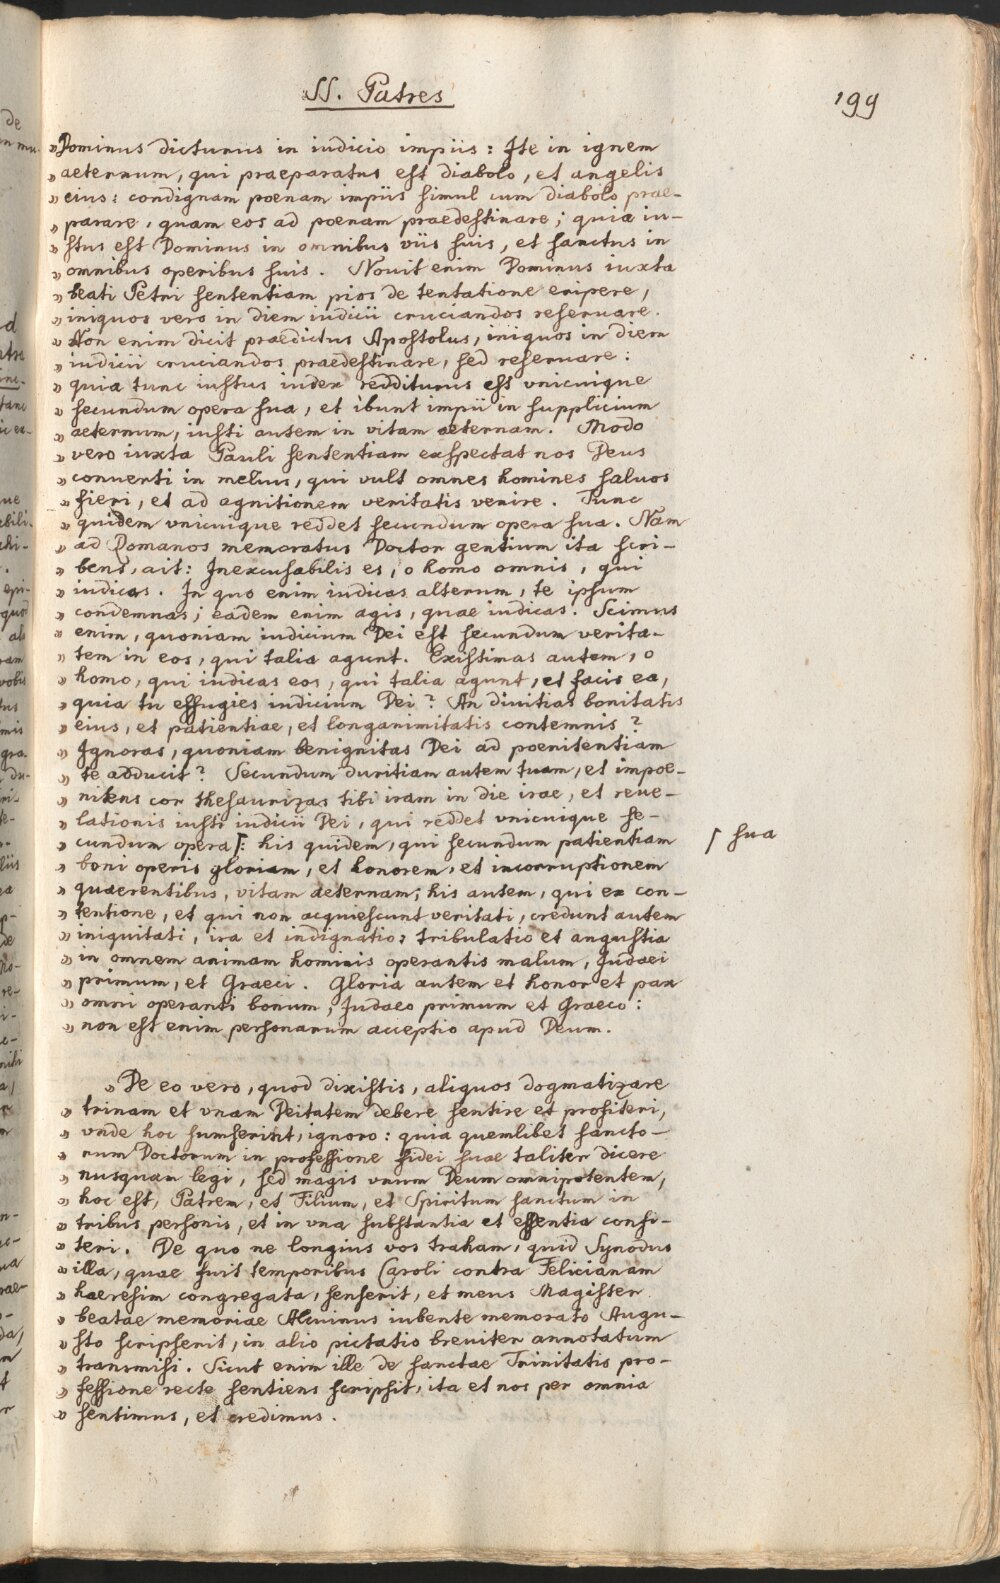 SS. Patres
199
» Dominus dicturus in iudicio impiis: Ite in ignem
» aeternum, qui praeparatus est diabolo, et angelis
» eius: condignam poenam impiis simul cum diabolo prae-
» parare, quam eos ad poenam praedestinare; quia iu-
» stus est Dominus in omnibus viis suis, et sanctus in
» omnibus operibus suis. Novit enim Dominus iuxta
» beati Petri sententiam pios de tentatione eripere,
» iniquos vero in diem iudicii cruciandos reservare.
» Non enim dicit praedictus Apostolus, iniquos in diem
» iudicii cruciandos praedestinare, sed reservare:
» quia tunc iustus iudex redditurus est vnicuique
» secundum opera sua, et ibunt impii in supplicium
» aeternum, iusti autem in vitam aeternam. Modo
» vero iuxta Pauli sententiam exspectat nos Deus
» converti in melius, qui vult omnes homines salvos
» fieri, et ad agnitionem veritatis venire. Tunc
» quidem vnicuique reddet secundum opera sua. Nam
» ad Romanos memoratus Doctor gentium ita scri-
» bens, ait: Inexcusabilis es, o homo omnis, qui
» iudicas. In quo enim iudicas alterum, te ipsum
» condemnas; eadem enim agis, quae iudicas. Scimus
» enim, quoniam iudicium Dei est secundum verita-
» tem in eos, qui talia agunt. Existimas autem, o
» homo, qui iudicas eos, qui talia agunt, et facis ea,
» quia tu effugies iudicium Dei? An divitias bonitatis
» eius, et patientiae, et longanimitatis contemnis?
» Ignoras, quoniam benignitas Dei ad poenitentiam
» te adducit? Secundum duritiam autem tuam, et impoe-
» nitens cor thesaurizas tibi iram in die irae, et reve-
» lationis iusti iudicii Dei, qui reddet vnicuique se-
» cundum opera⌈: his quidem, qui secundum patientiam
⌈ sua
» boni operis gloriam, et honorem, et incorruptionem
» quaerentibus, vitam aeternam; his autem, qui ex con-
» tentione, et qui non acquiescunt veritati, credunt autem
» iniquitati, ira et indignatio: tribulatio et angustia
» in omnem animam hominis operantis malum, Iudaei
» primum, et Graeci. Gloria autem et honor et pax
» omni operanti bonum, Iudaeo primum et Graeco:
» non est enim personarum acceptio apud Deum.
» De eo vero, quod dixistis, aliquos dogmatizare
» trinam et vnam Deitatem debere sentire et profiteri,
» vnde hoc sumserint, ignoro: quia quemlibet sancto-
» rum Doctorum in professione fidei suae taliter dicere
» nusquam legi, sed magis vnum Deum omnipotentem,
» hoc est, Patrem, et Filium, et Spiritum sanctum in
» tribus personis, et in vna substantia et essentia confi-
» teri. De quo ne longius vos traham, quid Synodus
» illa, quae fuit temporibus Caroli contra Felicianam
» haeresim congregata, senserit, et meus Magister
» beatae memoriae Alcuinus iubente memorato Augu-
» sto scripserit, in alio pictatio breviter annotatum
» transmisi. Sicut enim ille de sanctae Trinitatis pro-
» fessione recte sentiens scripsit, ita et nos per omnia
» sentimus, et credimus.